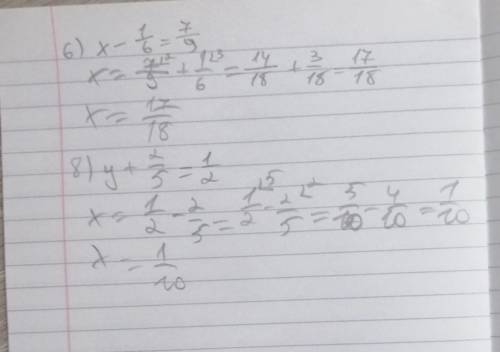 6) x - 1/6 = 7/9
x = 7/9 + 1/6 = 14/18 + 3/18 = 17/18
x = 17/18
8) y + 2/5 = 1/2
x = 1/2 - 2/5 = 1/2 - 2/5 = 5/10 - 4/10 = 1/10
x = 1/10